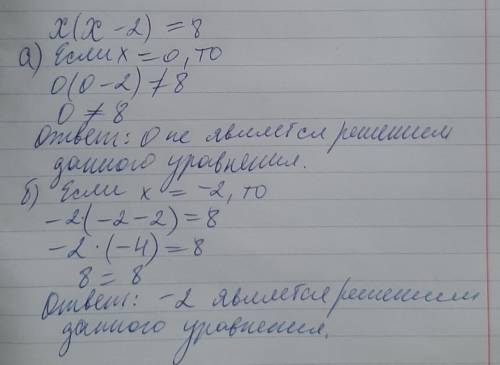 x(x-2) = 8
а) Если x = 0, то
0(0-2) ≠ 8
0 ≠ 8
Ответ: 0 не является решением
данного уравнения.
б) Если x = -2, то
-2(-2-2) = 8
-2 · (-4) = 8
8 = 8
Ответ: -2 является решением
данного уравнения.